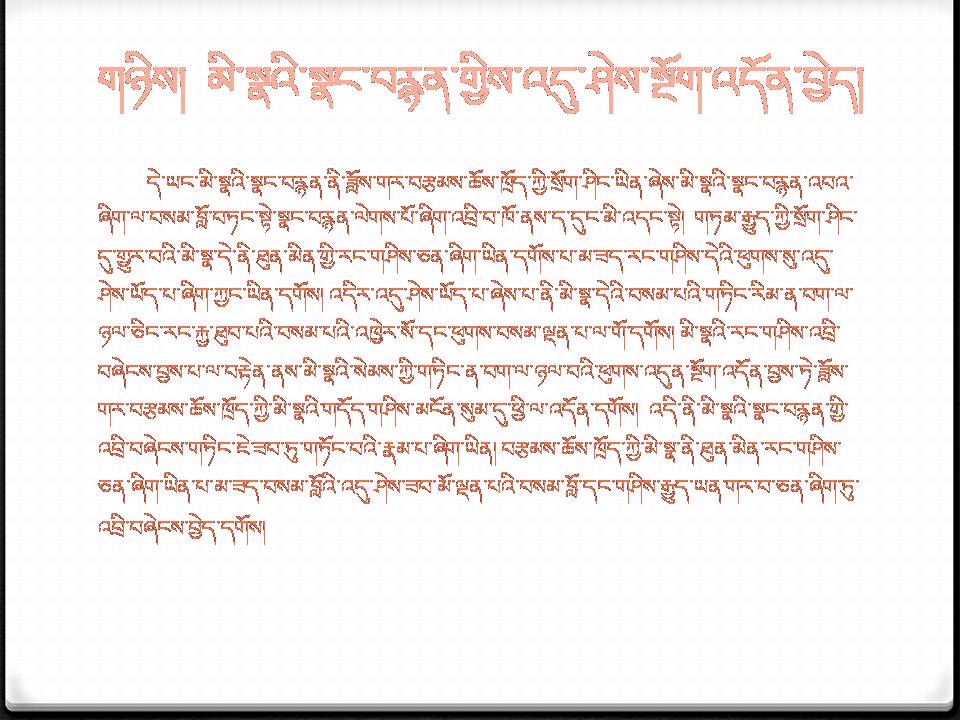 གཉིས། མི་སྣའི་སྣང་བརྙན་གྱིས་འདུ་ཤེས་སྔོག་འདོན་བྱེད།
དེ་ཡང་མི་སྣའི་སྣང་བརྙན་ནི་ཟློས་གར་བརྩམས་ཆོས་ཁྲོད་ཀྱི་སྲོག་ཤིང་ཡིན་ཞེས་མི་སྣའི་སྣང་བརྙན་འབའ་
ཞིག་ལ་བསམ་བློ་བཏང་སྟེ་སྣང་བརྙན་ལེགས་པོ་ཞིག་འབྲི་བ་ཁོ་ནས་ད་དུང་མི་འདང་སྟེ། གཏམ་རྒྱུད་ཀྱི་སྲོག་ཤིང་
དུ་གྱུར་བའི་མི་སྣ་དེ་ནི་ཐུན་མིན་གྱི་རང་གཤིས་ཅན་ཞིག་ཡིན་དགོས་པ་མ་ཟད་རང་གཤིས་དེའི་ཕུགས་སུ་འདུ་
ཤེས་ཡོད་པ་ཞིག་ཀྱང་ཡིན་དགོས། འདིར་འདུ་ཤེས་ཡོད་པ་ཞེས་པ་ནི་མི་སྣ་དེའི་བསམ་པའི་གཏིང་རིམ་ན་བག་ལ་
ཉལ་ཅིང་རང་རྐྱ་ཐུབ་པའི་བསམ་པའི་འཁྱེར་སོ་དང་ཕུགས་བསམ་ལྡན་པ་ལ་གོ་དགོས། མི་སྣའི་རང་གཤིས་འབྲི་
བཞེངས་བྱས་པ་ལ་བརྟེན་ནས་མི་སྣའི་སེམས་ཀྱི་གཏིང་ན་བག་ལ་ཉལ་བའི་ཕུགས་འདུན་སྔོག་འདོན་བྱས་ཏེ་ཟློས་
གར་བརྩམས་ཆོས་ཁྲོད་ཀྱི་མི་སྣའི་གདོད་གཤིས་མངོན་སུམ་དུ་ཕྱི་ལ་འདོན་དགོས། འདི་ནི་མི་སྣའི་སྣང་བརྙན་གྱི་
འབྲི་བཞེངས་གཏིང་ཇེ་ཟབ་ཏུ་གཏོང་བའི་རྣམ་པ་ཞིག་ཡིན། བརྩམས་ཆོས་ཁྲོད་ཀྱི་མི་སྣ་ནི་ཐུན་མིན་རང་གཤིས་
ཅན་ཞིག་ཡིན་པ་མ་ཟད་བསམ་བློའི་འདུ་ཤེས་ཟབ་མོ་ལྡན་པའི་བསམ་བློ་དང་གཤིས་རྒྱུད་ཡན་གར་བ་ཅན་ཞིག་ཏུ་
འབྲི་བཞེངས་བྱེད་དགོས།